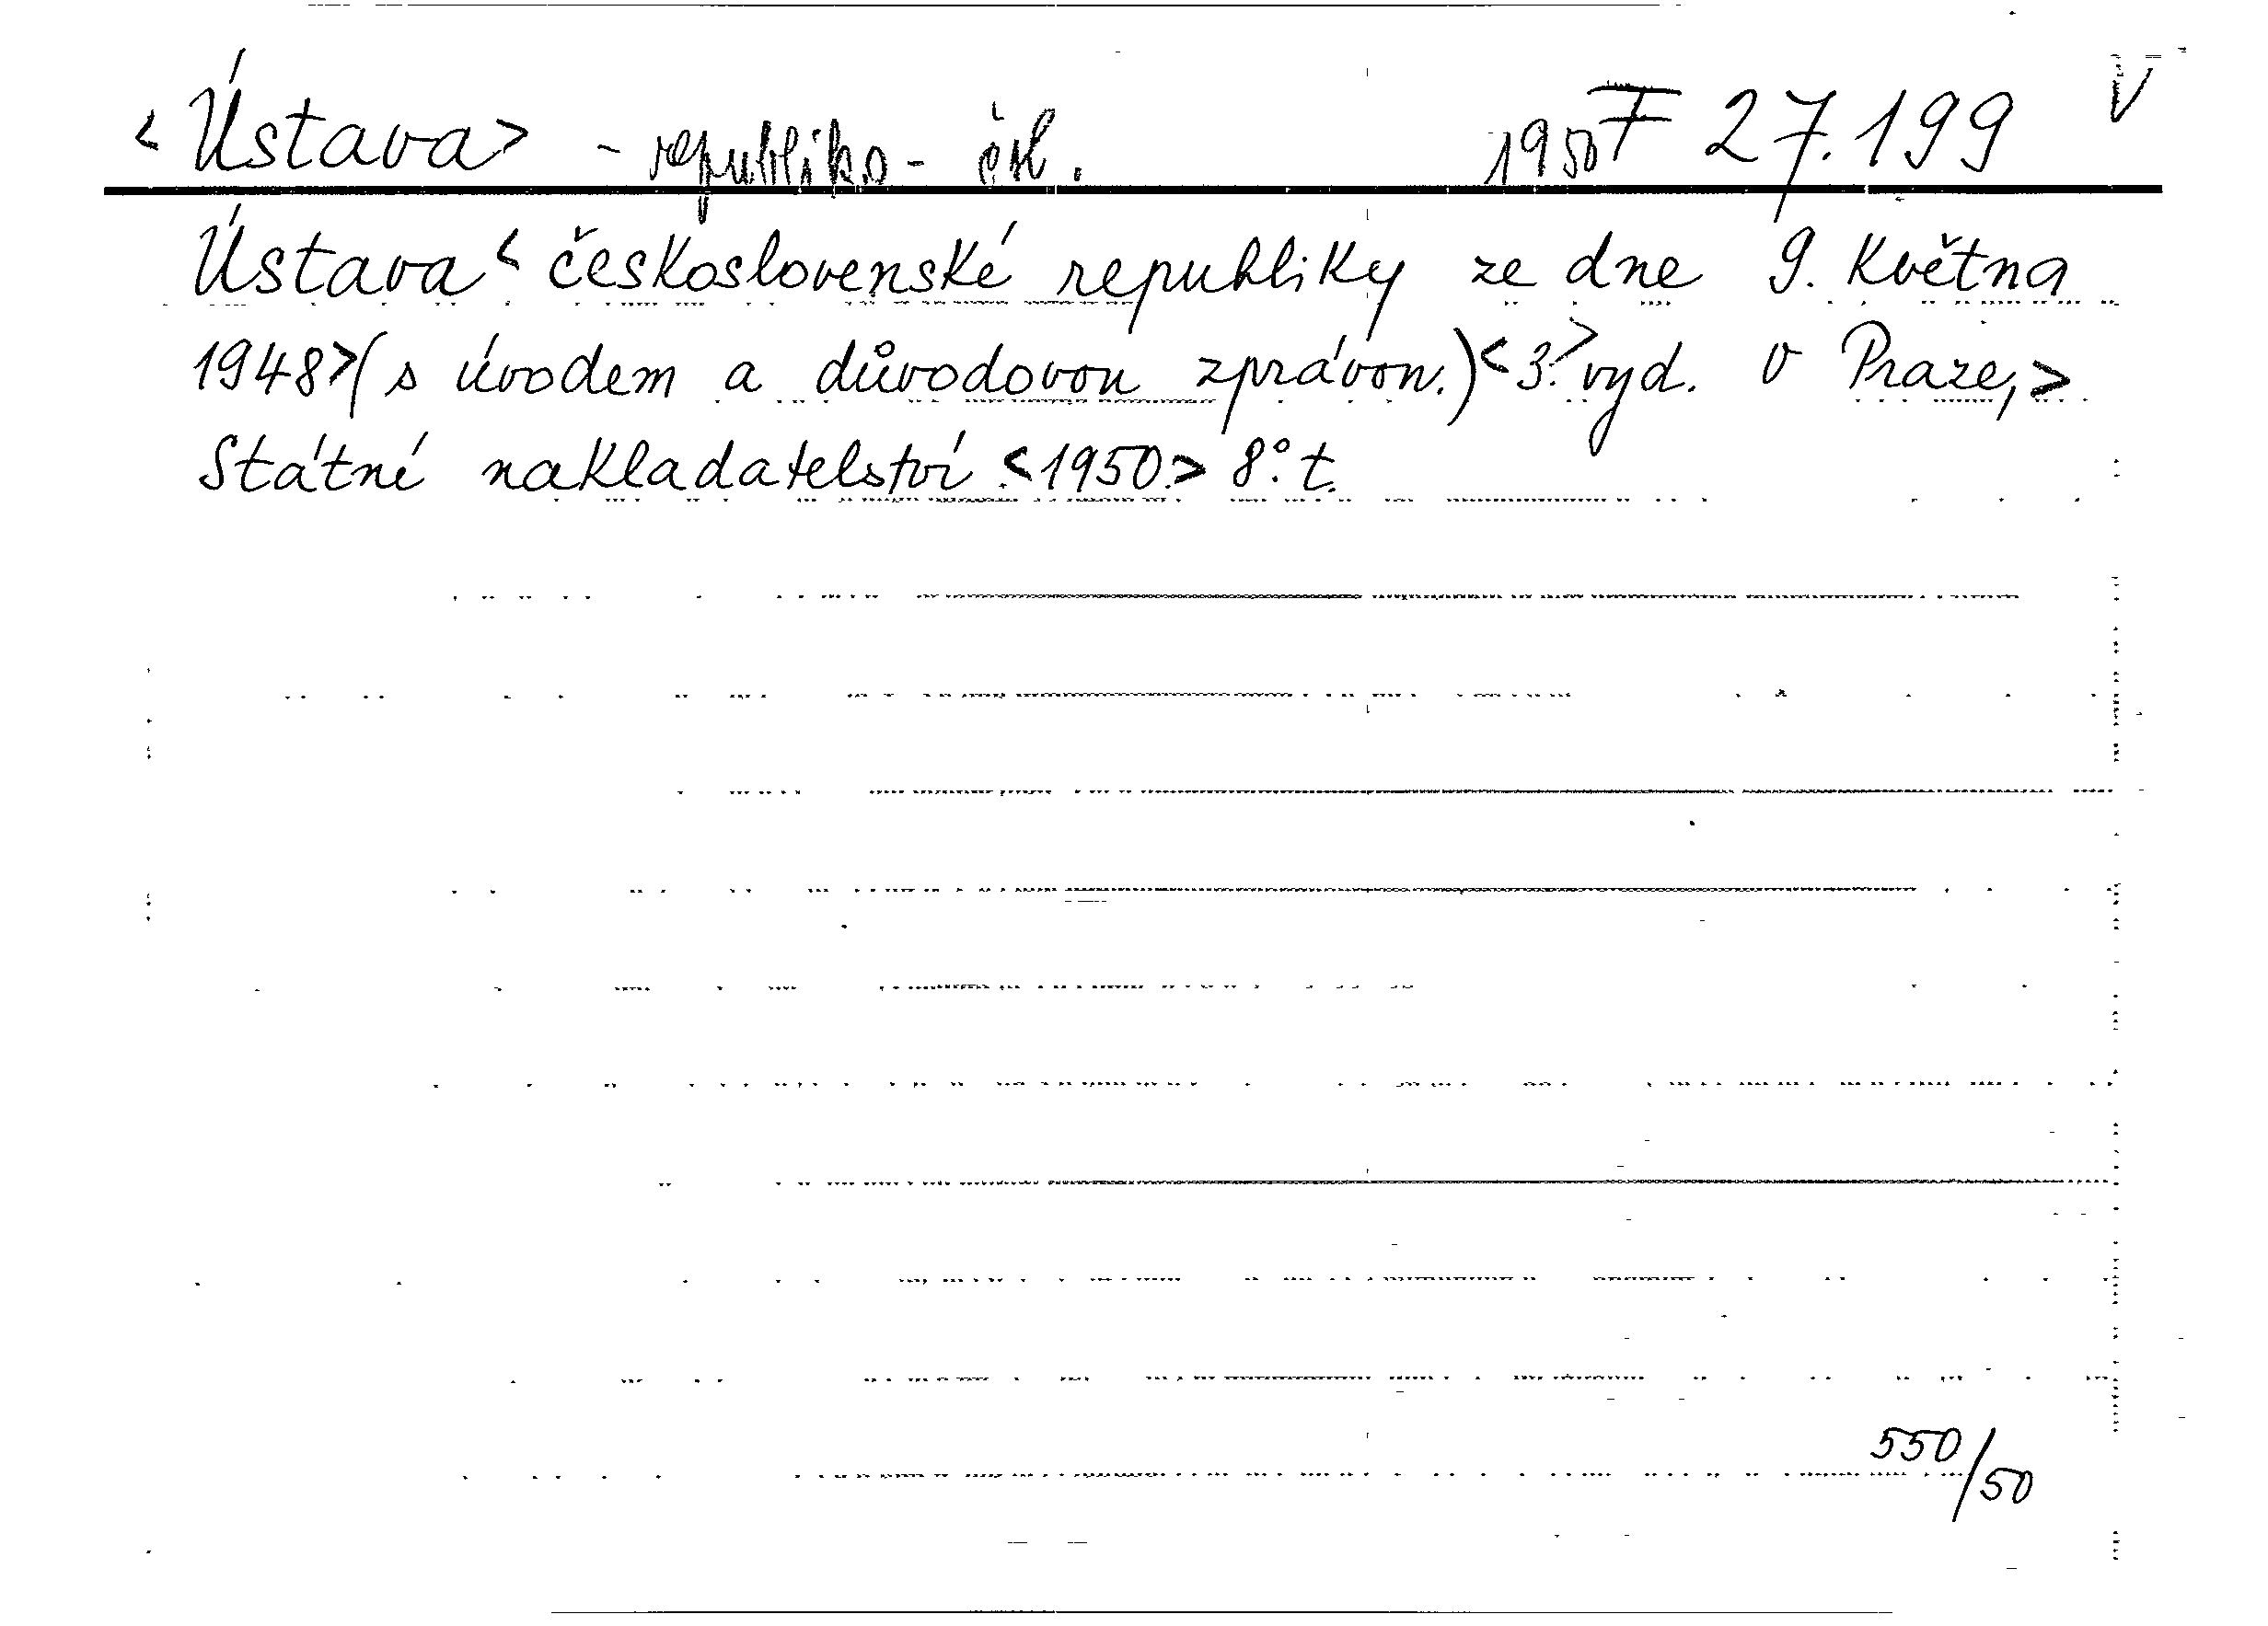 <Ústava> - republika - čsl. 1950 F 27.199 V
Ústava < československé republiky ze dne 9. května
1948>(s úvodem a důvodovou zprávou.)<3.> vyd. V Praze,>
Státné nakladatelství <1950.> 8° t.
550/50